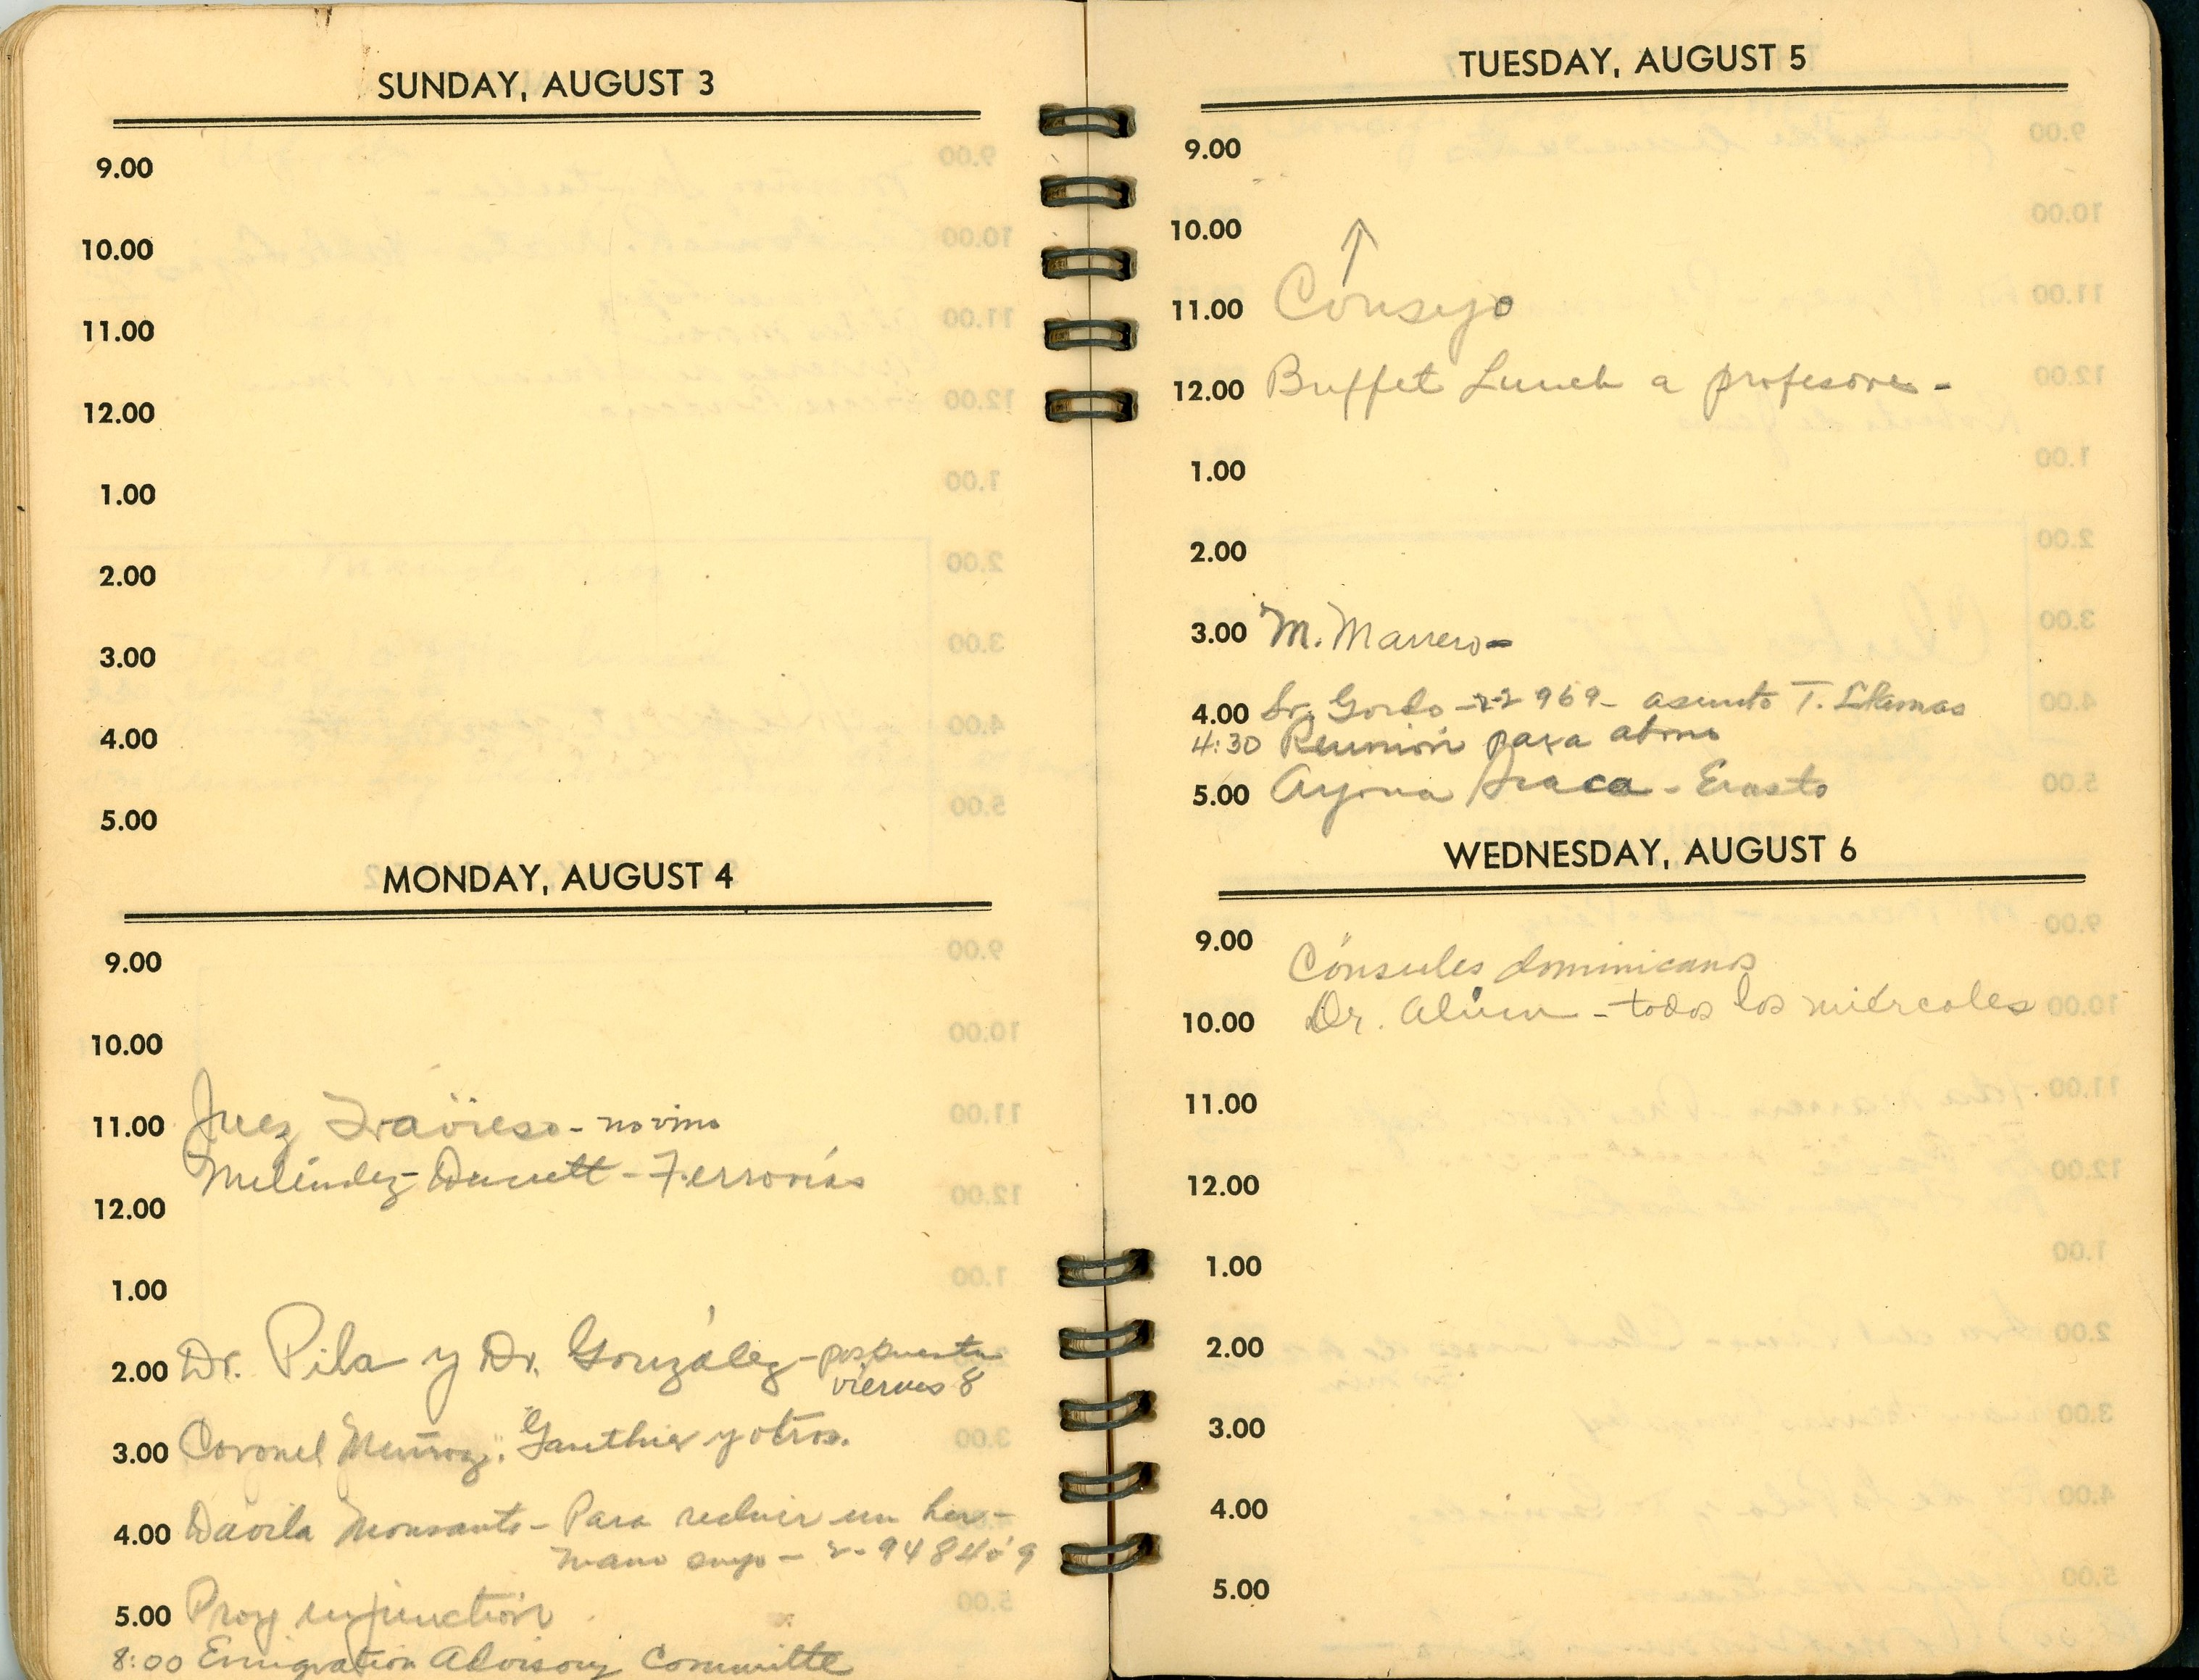 SUNDAY, AUGUST 3
9.00
10.00
11.00
12.00
1.00
2.00
3.00
4.00
5.00
MONDAY, AUGUST 4
9.00
10.00
11.00 Juez Travieso - no vino
Meléndez - Ferrovías
12.00
1.00
2.00 Dr. Pila y Dr. González - pospuesta
viernes 8
3.00 Coronel Muñoz, Gauthier y otros.
4.00 Dávila Monsanto - Para recluir un her-
mano suyo -
5.00 Proy injunction
8:00 Emigration Advisory Committe
TUESDAY, AUGUST 5
9.00
10.00 ↑
11.00 Consejo
12.00 Buffet Lunch a profesores -
1.00
2.00
3.00 M. Marrero -
4.00 Sr. Gordo - 2-2969 - asunto T. Llamas
4:30 Reunión para abono
5.00 Arjona - Erasto
WEDNESDAY, AUGUST 6
9.00
Cónsules dominicanos
10.00 Dr. - todos los miércoles
11.00
12.00
1.00
2.00
3.00
4.00
5.00